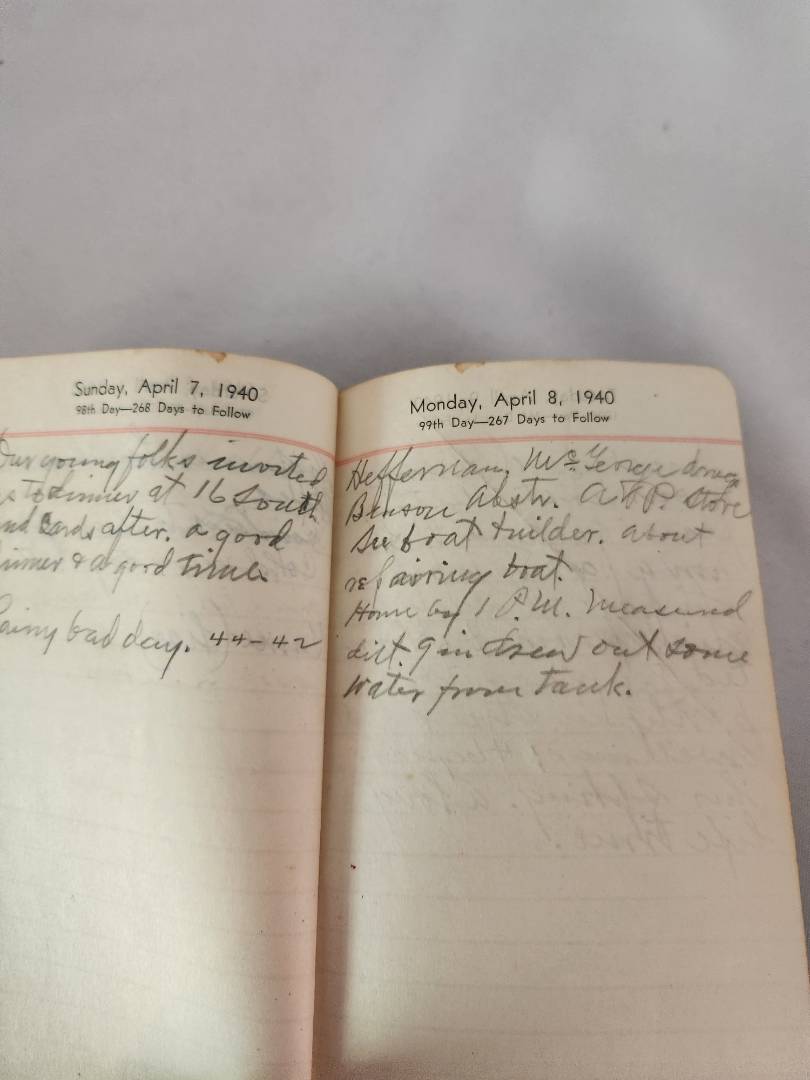 Sunday, April 7, 1940
98th Day—268 Days to Follow
Our young folks invited
us to dinner at 16 South
and Cards after. a good
dinner & a good time.
Rainy bad day. 44-42
Monday, April 8, 1940
99th Day—267 Days to Follow
Heffernan, McGeorge
Benson Abstr. A & P. Store
See boat builder. about
repairing boat.
Home by 1 P.M. Measured
dist. 9 in drew out some
water from tank.